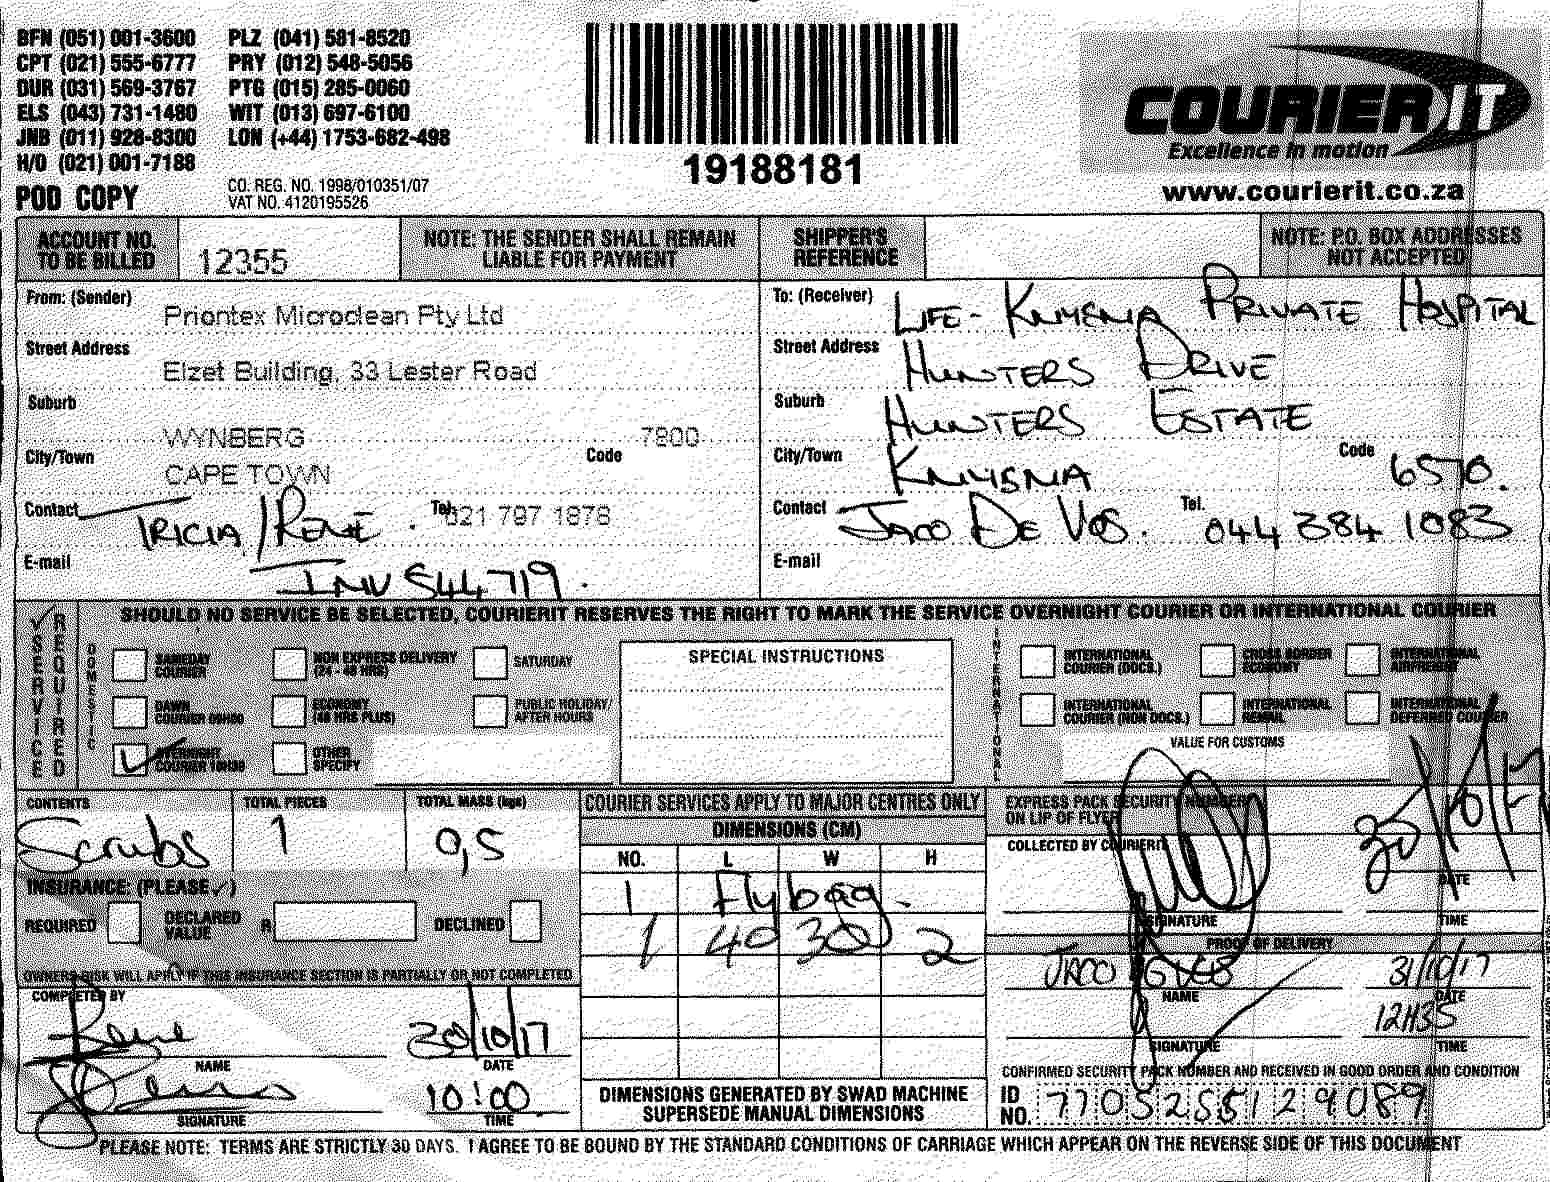 BFN (051) 001-3600 PLZ (041) 581-8520
CPT (021) 555-6777 PRY (012) 548-5056
DUR (031) 569-3767 PTG (015) 285-0060
ELS (043) 731-1480 WIT (013) 697-6100
JNB (011) 928-8300 LON (+44) 1753-682-498
H/O (021) 001-7188
POD COPY
CO. REG. NO. 1998/010351/07
VAT NO. 4120195526
19188181
COURIER IT
Excellence in motion
www.courierit.co.za
ACCOUNT NO. TO BE BILLED 12355
NOTE: THE SENDER SHALL REMAIN LIABLE FOR PAYMENT
SHIPPER'S REFERENCE
NOTE: P.O. BOX ADDRESSES NOT ACCEPTED
From: (Sender) Priontex Microclean Pty Ltd
Street Address Elzet Building, 33 Lester Road
Suburb WYNBERG
City/Town CAPE TOWN Code 7800
Contact TRICIA/RENÉ. Tel. 021 797 1878
E-mail INV 544719.
To: (Receiver) LIFE - KNYSNA PRIVATE HOSPITAL
Street Address HUNTERS DRIVE
Suburb HUNTERS ESTATE
City/Town KNYSNA Code 6570.
Contact JACO DE VOS. Tel. 044 384 1083
E-mail
SHOULD NO SERVICE BE SELECTED, COURIERIT RESERVES THE RIGHT TO MARK THE SERVICE OVERNIGHT COURIER OR INTERNATIONAL COURIER
SERVICE REQUIRED
DOMESTIC
SAMEDAY COURIER
NON EXPRESS DELIVERY (24 - 48 HRS)
SATURDAY
DAWN COURIER 09H00
ECONOMY (48 HRS PLUS)
PUBLIC HOLIDAY/ AFTER HOURS
OVERNIGHT COURIER 10H30
OTHER SPECIFY
SPECIAL INSTRUCTIONS
INTERNATIONAL
INTERNATIONAL COURIER (DOCS.)
CROSS BORDER ECONOMY
INTERNATIONAL AIRFREIGHT
INTERNATIONAL COURIER (NON DOCS.)
INTERNATIONAL REMAIL
INTERNATIONAL DEFERRED COURIER
VALUE FOR CUSTOMS
CONTENTS Scrubs
TOTAL PIECES 1
TOTAL MASS (kgs) 0,5
INSURANCE: (PLEASE ✓)
REQUIRED
DECLARED VALUE R
DECLINED
OWNERS RISK WILL APPLY IF THIS INSURANCE SECTION IS PARTIALLY OR NOT COMPLETED
COMPLETED BY
Rene 30/10/17
NAME DATE
10:00
SIGNATURE TIME
COURIER SERVICES APPLY TO MAJOR CENTRES ONLY
DIMENSIONS (CM)
NO. L W H
1 Flybag.
1 40 30 2
DIMENSIONS GENERATED BY SWAD MACHINE
SUPERSEDE MANUAL DIMENSIONS
EXPRESS PACK SECURITY NUMBER
ON LIP OF FLYER
COLLECTED BY COURIERIT
DATE
SIGNATURE TIME
PROOF OF DELIVERY
JACO 31/10/17
NAME DATE
12H35
SIGNATURE TIME
CONFIRMED SECURITY PACK NUMBER AND RECEIVED IN GOOD ORDER AND CONDITION
ID NO. 7705255129089
PLEASE NOTE: TERMS ARE STRICTLY 30 DAYS. I AGREE TO BE BOUND BY THE STANDARD CONDITIONS OF CARRIAGE WHICH APPEAR ON THE REVERSE SIDE OF THIS DOCUMENT